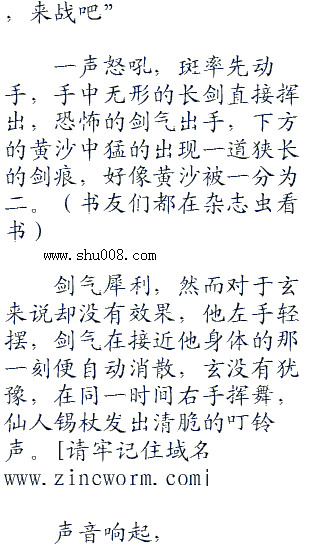 ，来战吧”
一声怒吼，斑率先动
手，手中无形的长剑直接挥
出，恐怖的剑气出手，下方
的黄沙中猛的出现一道狭长
的剑痕，好像黄沙被一分为
二。（书友们都在杂志虫看
书）
www.shu008.com
剑气犀利，然而对于玄
来说却没有效果，他左手轻
摆，剑气在接近他身体的那
一刻便自动消散，玄没有犹
豫，在同一时间右手挥舞，
仙人锡杖发出清脆的叮铃
声。[请牢记住域名
www.zincworm.com]
声音响起，